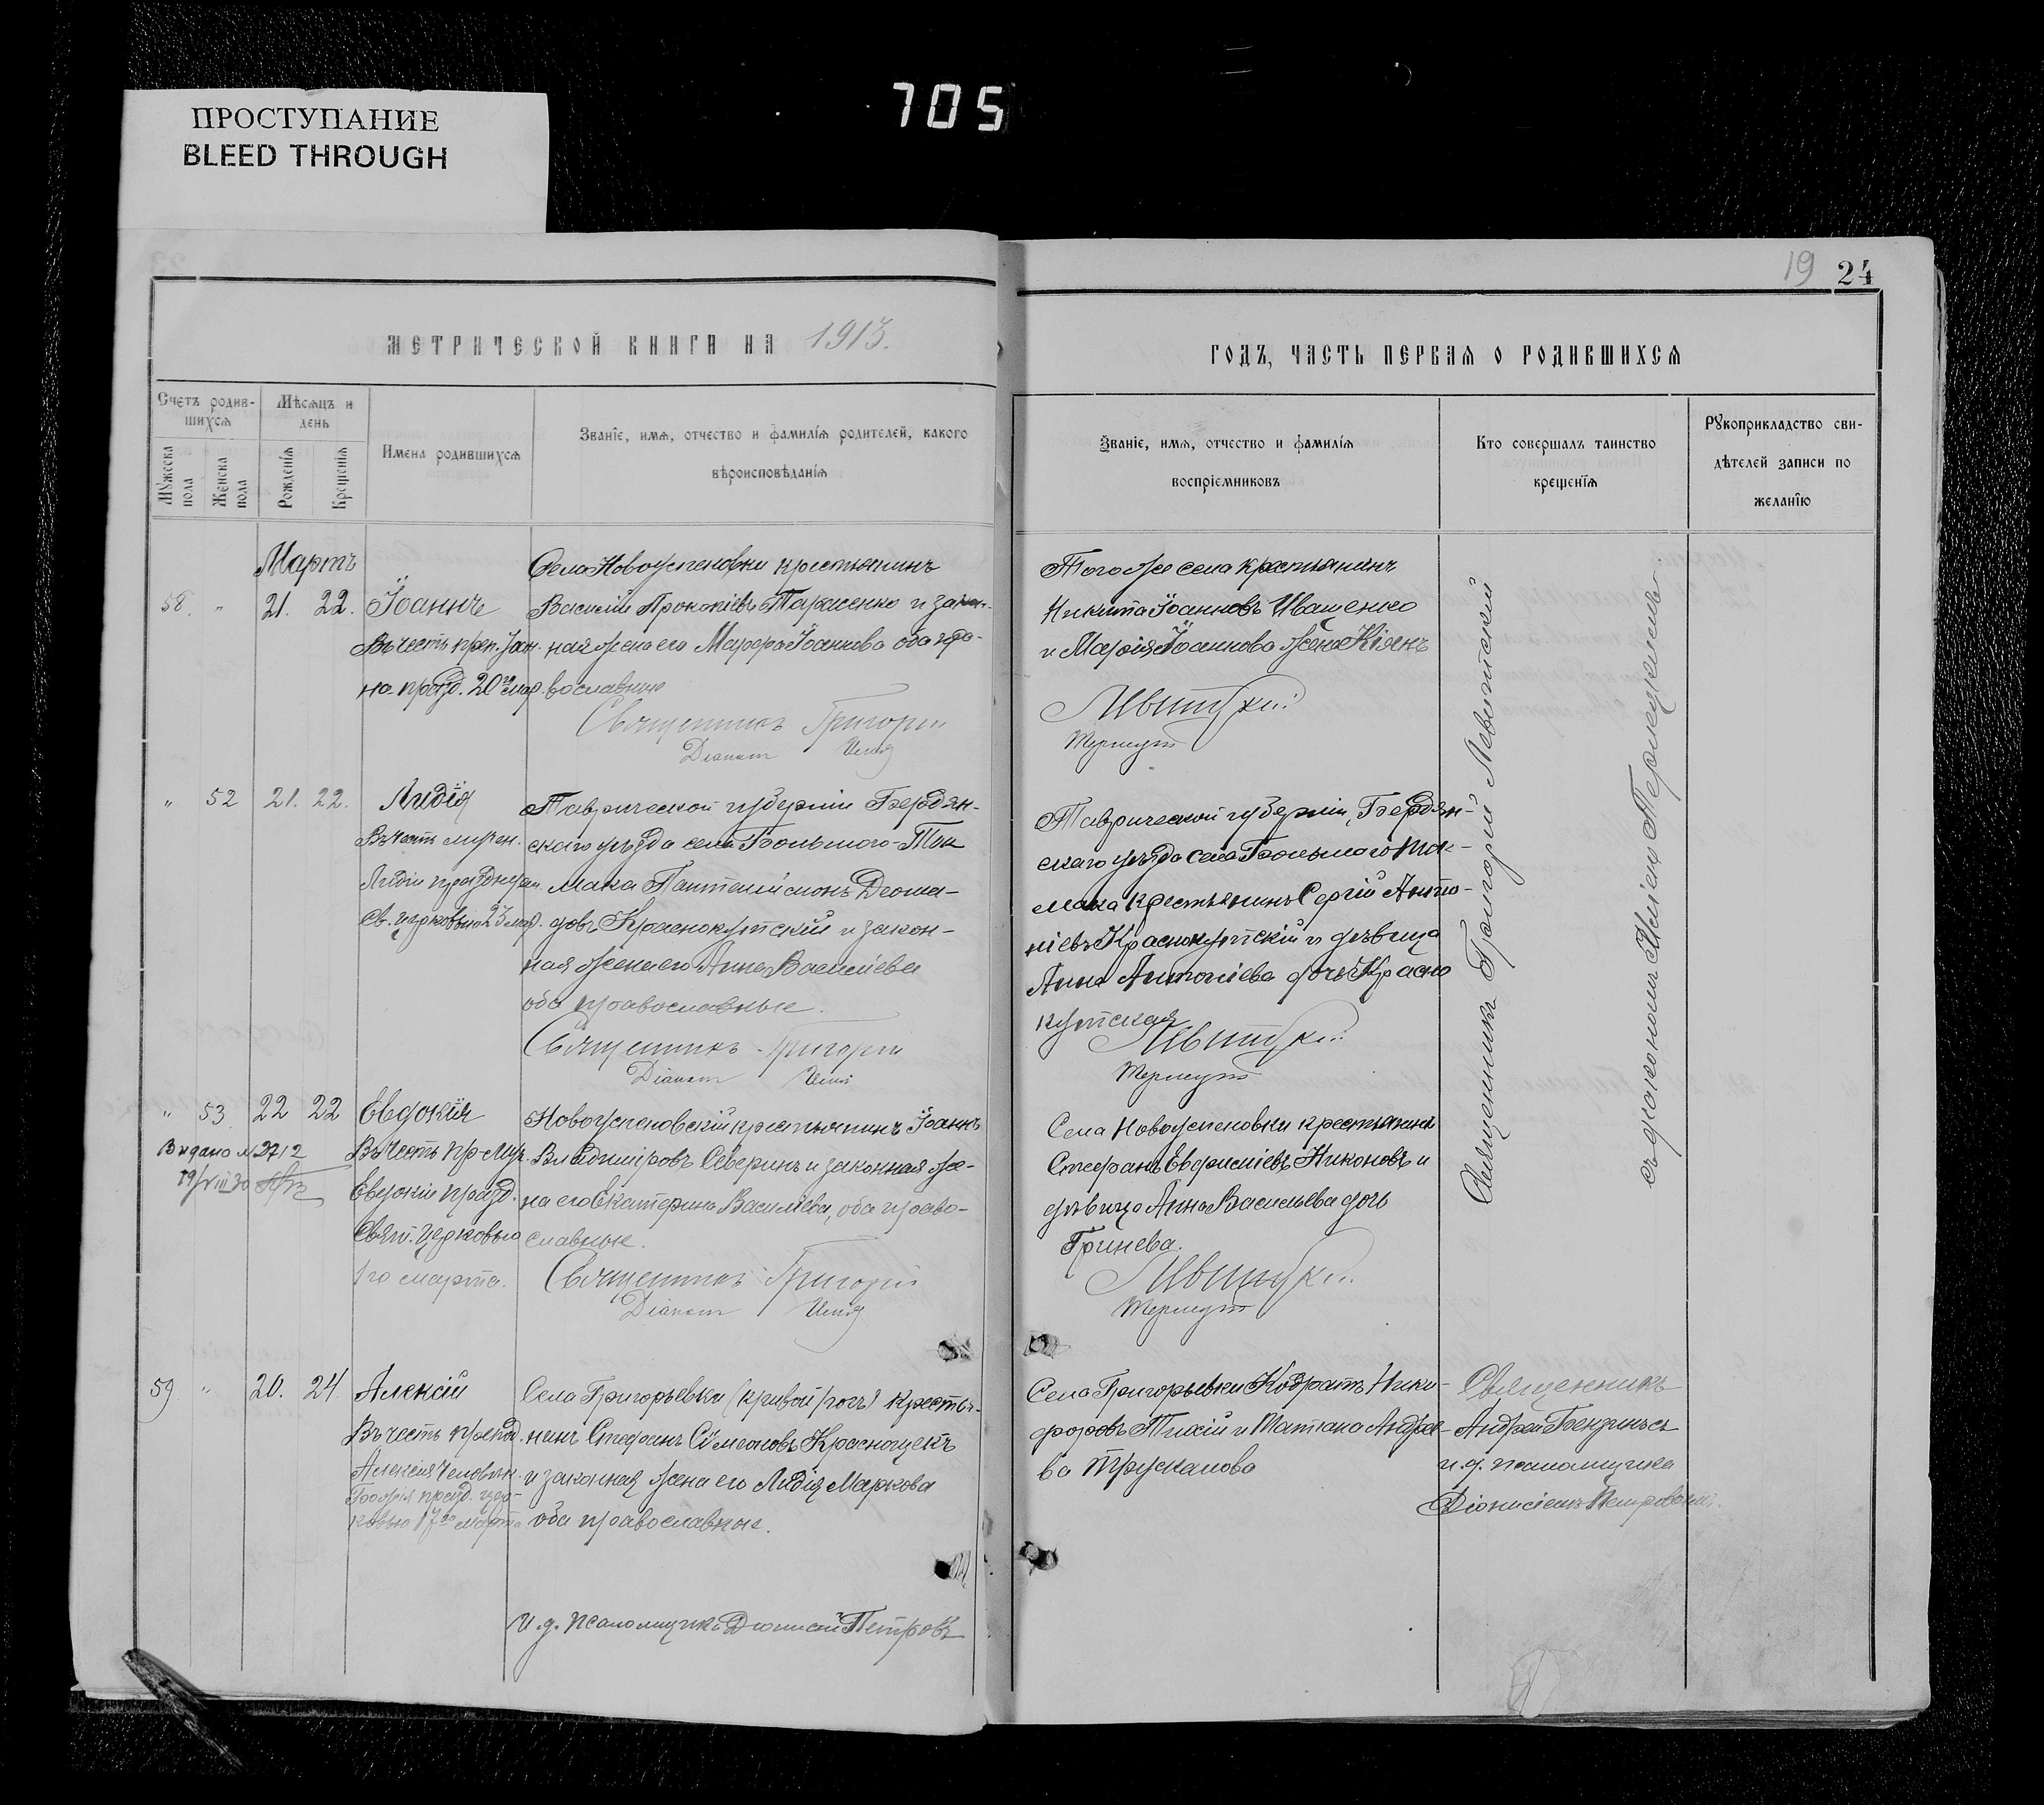 705
ПРОСТУПАНИЕ
BLEED THROUGH
19 24
МЕТРИЧЕСКОЙ КНИГИ НА 1913.
ГОДЪ, ЧАСТЬ ПЕРВАЯ О РОДИВШИХСЯ
Счетъ родив-
шихся
Мѣсяцъ и
день
Мужеска
пола
Женска
пола
Рожденія
Крещенія
Имена родившихся
Званіе, имя, отчество и фамилія родителей, какого
вѣроисповѣданія
Званіе, имя, отчество и фамилія
воспріемниковъ
Кто совершалъ таинство
крещенія
Рукоприкладство сви-
дѣтелей записи по
желанію
Мартъ
58. " 21. 22. Іоаннъ
Въ честь преп. Іоан-
на празд. 20го мар.
Села Новоуспеновки крестьянинъ
Василій Прокопіевъ Тарасенко и закон-
ная жена его Марфа Іоаннова оба пра-
вославные
Священникъ Григорій
Діаконъ
Того же села крестьянинъ
Никита Іоанновъ Иващенко
и Марія Іоаннова жена Кіянъ
Левитскій
" 52 21. 22. Лидія
Въ честь мучен.
Лидіи празднуем.
Св. церковью 23 мар.
Таврической губерніи Бердян-
скаго уѣзда села Большого-Ток
мака Пантелеимонъ
Краснокутскій и закон-
ная жена его Анна Василіева
оба православные.
Священникъ Григорій
Діаконъ
Таврической губерніи, Бердян-
скаго уѣзда села Большого Ток-
мака крестьянинъ Сергій Анто-
ніевъ Краснокутскій и дѣвица
Анна Антоніева дочь Красно
кутская
Левитскій
Священникъ Григорій Левитскій
" 53. 22 22 Евдокія
Видано № 2712
19/VIII 30
Въ честь пр-муч.
Евдокіи празд.
Свят. церковью
1го марта.
Новоуспеновскій крестьянинъ Іоаннъ
Владиміровъ Северинъ и законная же-
на его Екатерина Василіева, оба право-
славные.
Священникъ Григорій
Діаконъ
Села Новоуспеновки крестьянинъ
Стефанъ Евфиміевъ Никоновъ и
дѣвица Анна Васильева дочь
Гринева.
Левитскій
59. " 20. 24. Алексій
Въ честь препод.
Алексія Человѣк.
Божія празд. цер-
ковью 17го марта
Села Григорьевки (Кривой рогъ) крестья-
нинъ Стефанъ Сѵмеоновъ Краснощекъ
и законная жена его Лидія Маркова
оба православные.
И. д. псаломщика Діонисій Петровъ
Села Григорьевки Кодратъ Ники-
форовъ Тихій и Татіана Андрее-
ва Трусканова
Священникъ
Андрей
и. д. псаломщика
Діонисіемъ Петровымъ.